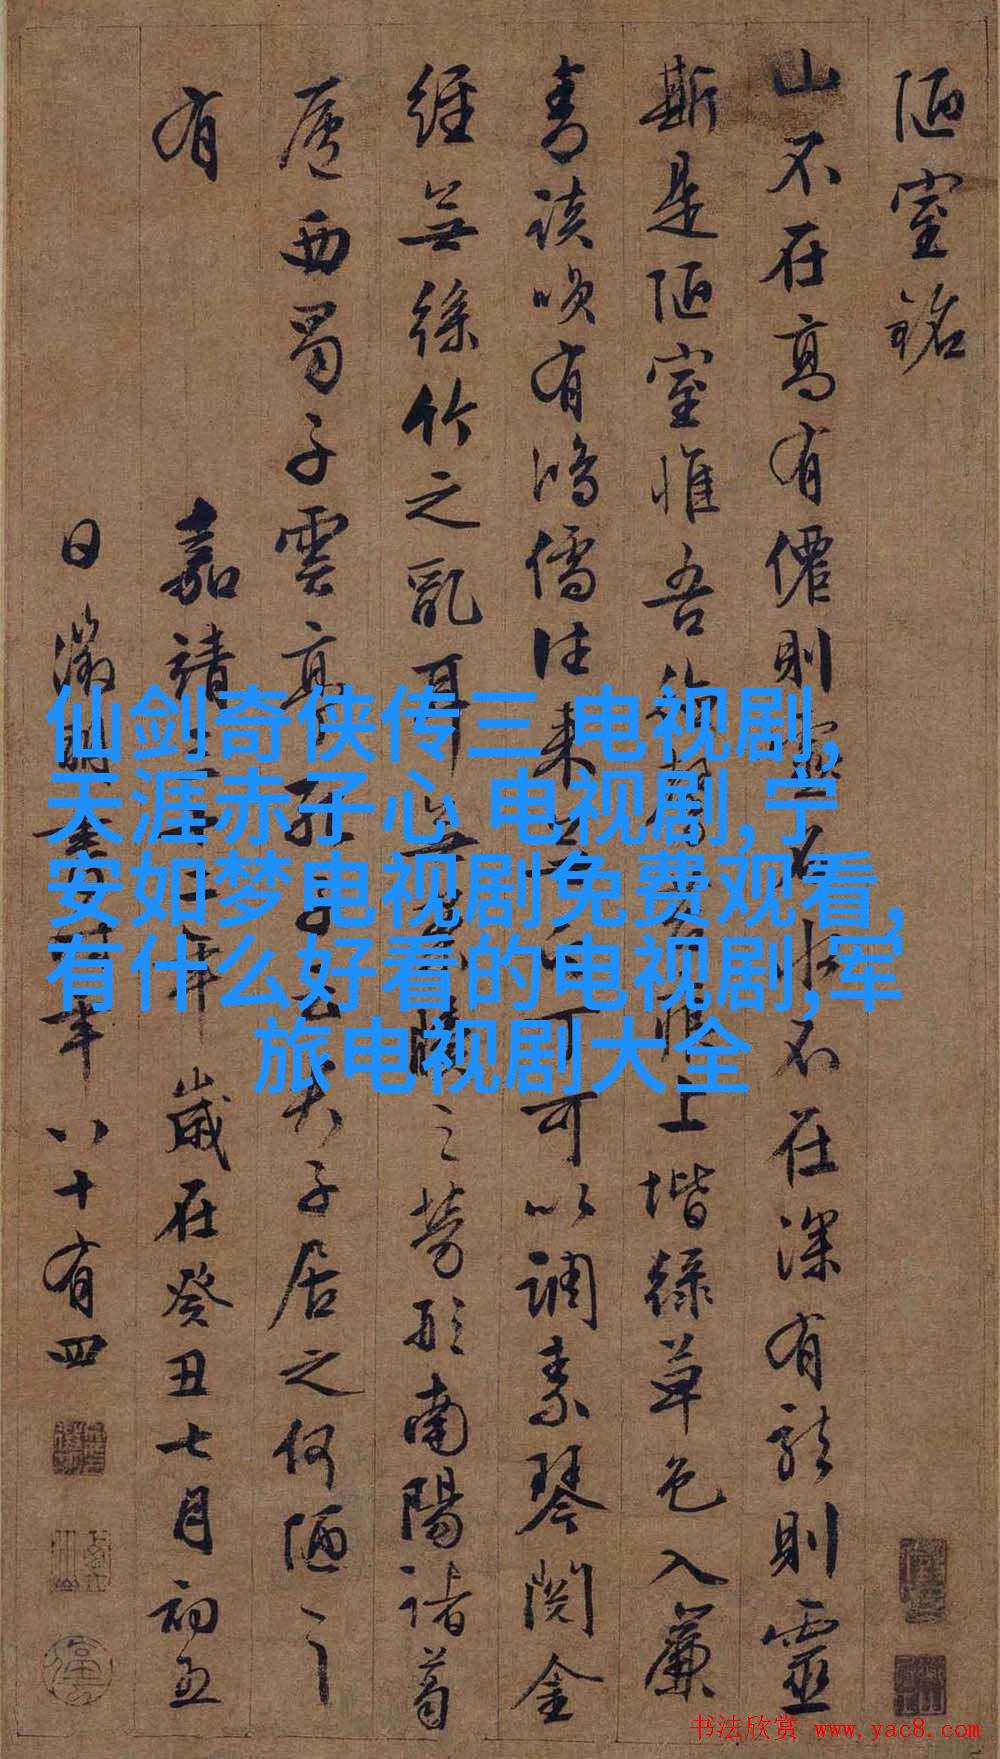 陋室銘
山不在高有僊則名水不在深有龍則靈
斯是陋室惟吾德馨苔痕上堦綠草色入簾
青談咲有鴻儒往来無白丁可以調素琴閱金
經無絲竹之亂耳無案牘之勞形南陽諸葛
廬西蜀子雲亭孔子云夫子居之何陋之
有 嘉靖三十二年歲在癸丑七月初五
日徵明書時年八十有四
仙剑奇侠传三 电视剧,
天涯赤子心 电视剧,宁
安如梦电视剧免费观看,
有什么好看的电视剧,军
旅电视剧大全
书法欣赏 www.yac8.com